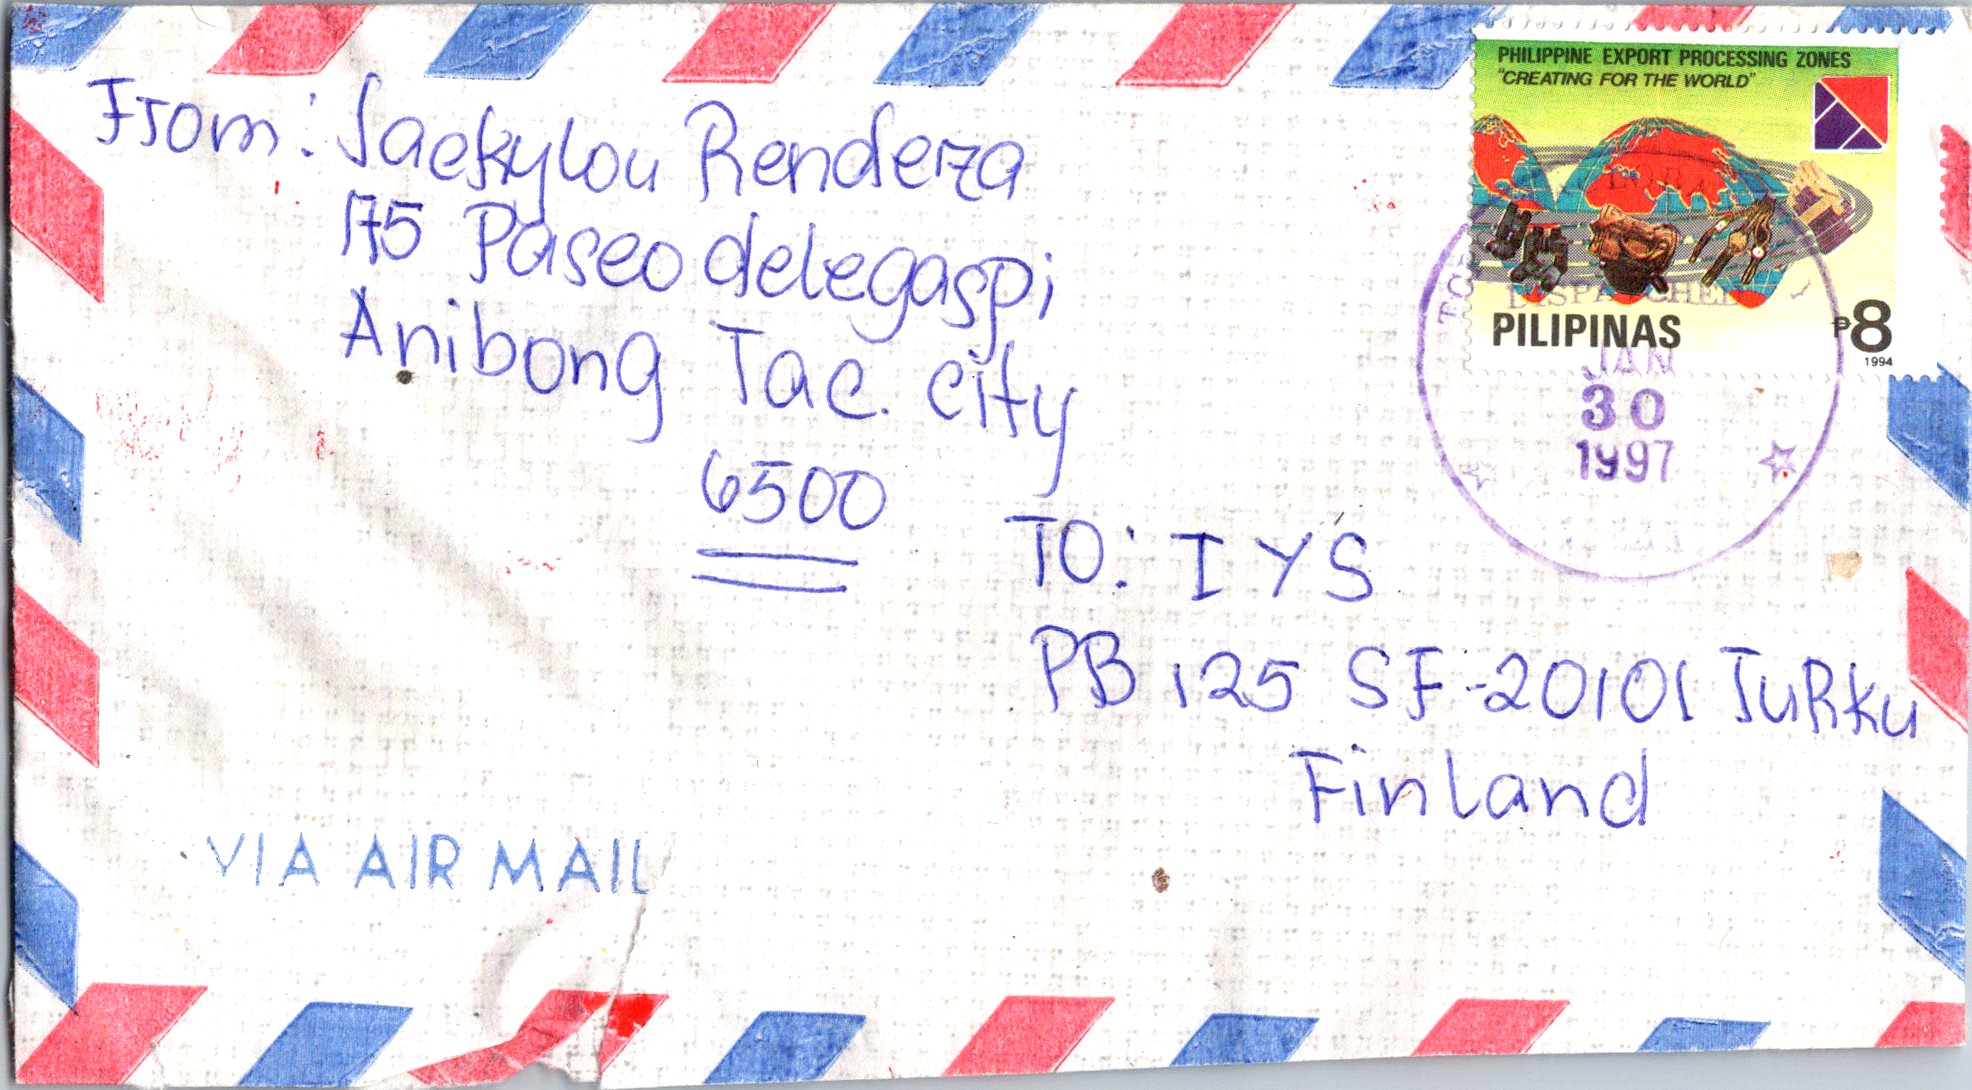 From: Jackylou Renderza
175 Paseo delegaspi
Anibong Tac. City
6500
PHILIPPINE EXPORT PROCESSING ZONES
"CREATING FOR THE WORLD"
PILIPINAS
₱8
1994
DISPATCHED
JAN
30
1997
TO: IYS
PB 125 SF-20101 TURku
Finland
VIA AIR MAIL